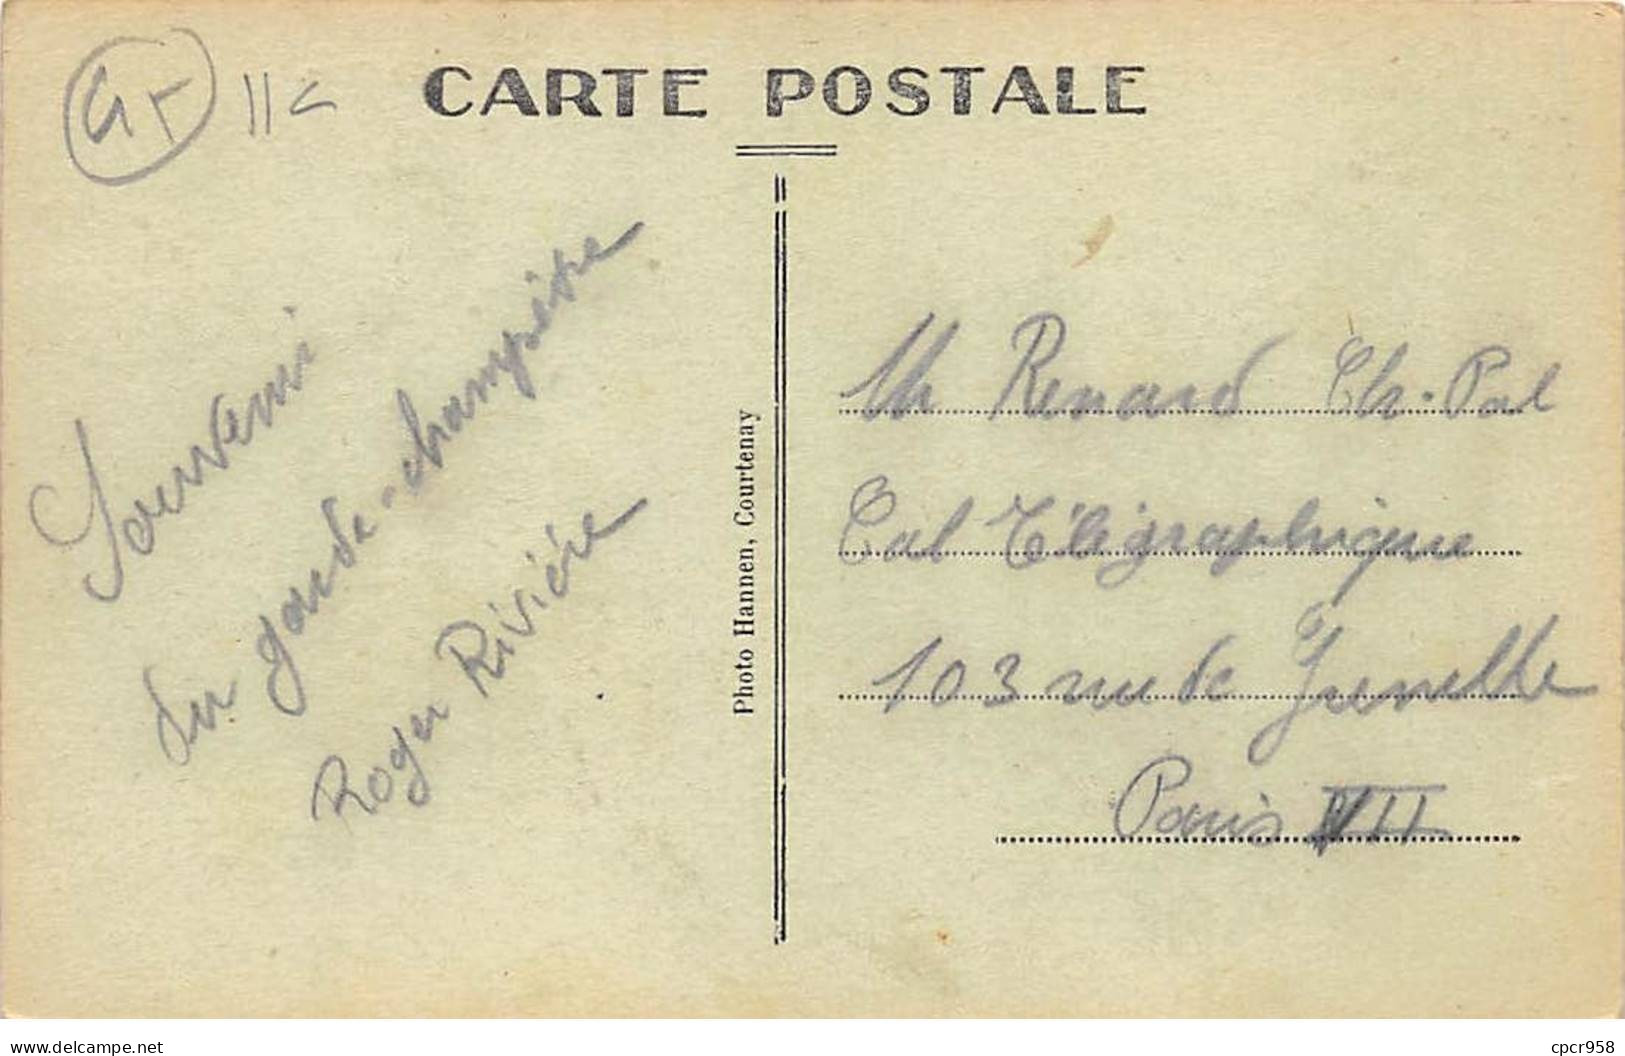 45 11c
CARTE POSTALE
Souvenir
du garde-champêtre
Roger Rivière
Photo Hannen, Courtenay
Mr Renard Ch. Pal
Cal Télégraphique
103 rue de Grenelle
Paris VII
delcampe.net
cpcr958